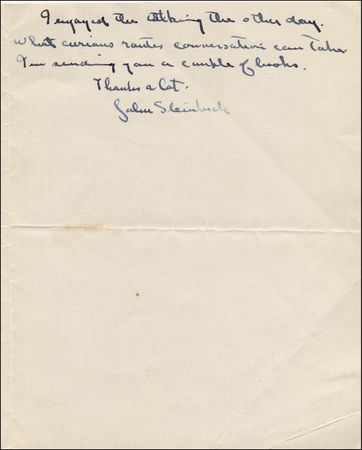 I enjoyed the talking the other day.
What curious routes conversation can take.
I'm sending you a couple of books.
Thanks a lot.
John Steinbeck